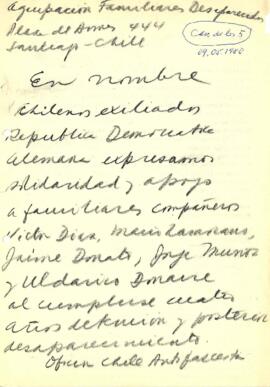 Agrupación Familiares Desaparecidos
Plaza de Armas 444
Santiago - Chile
09.05.1980
En nombre
chilenos exiliados
Republica Democratica
Alemana expresamos
solidaridad y apoyo
a familiares compañeros
Victor Diaz, Mario Zamorano,
Jaime Donato, Jorge Muñoz
y Uldarico Donaire
al cumplirse cuatro
años detención y posterior
desaparecimiento.
Oficin Chile Antifascista